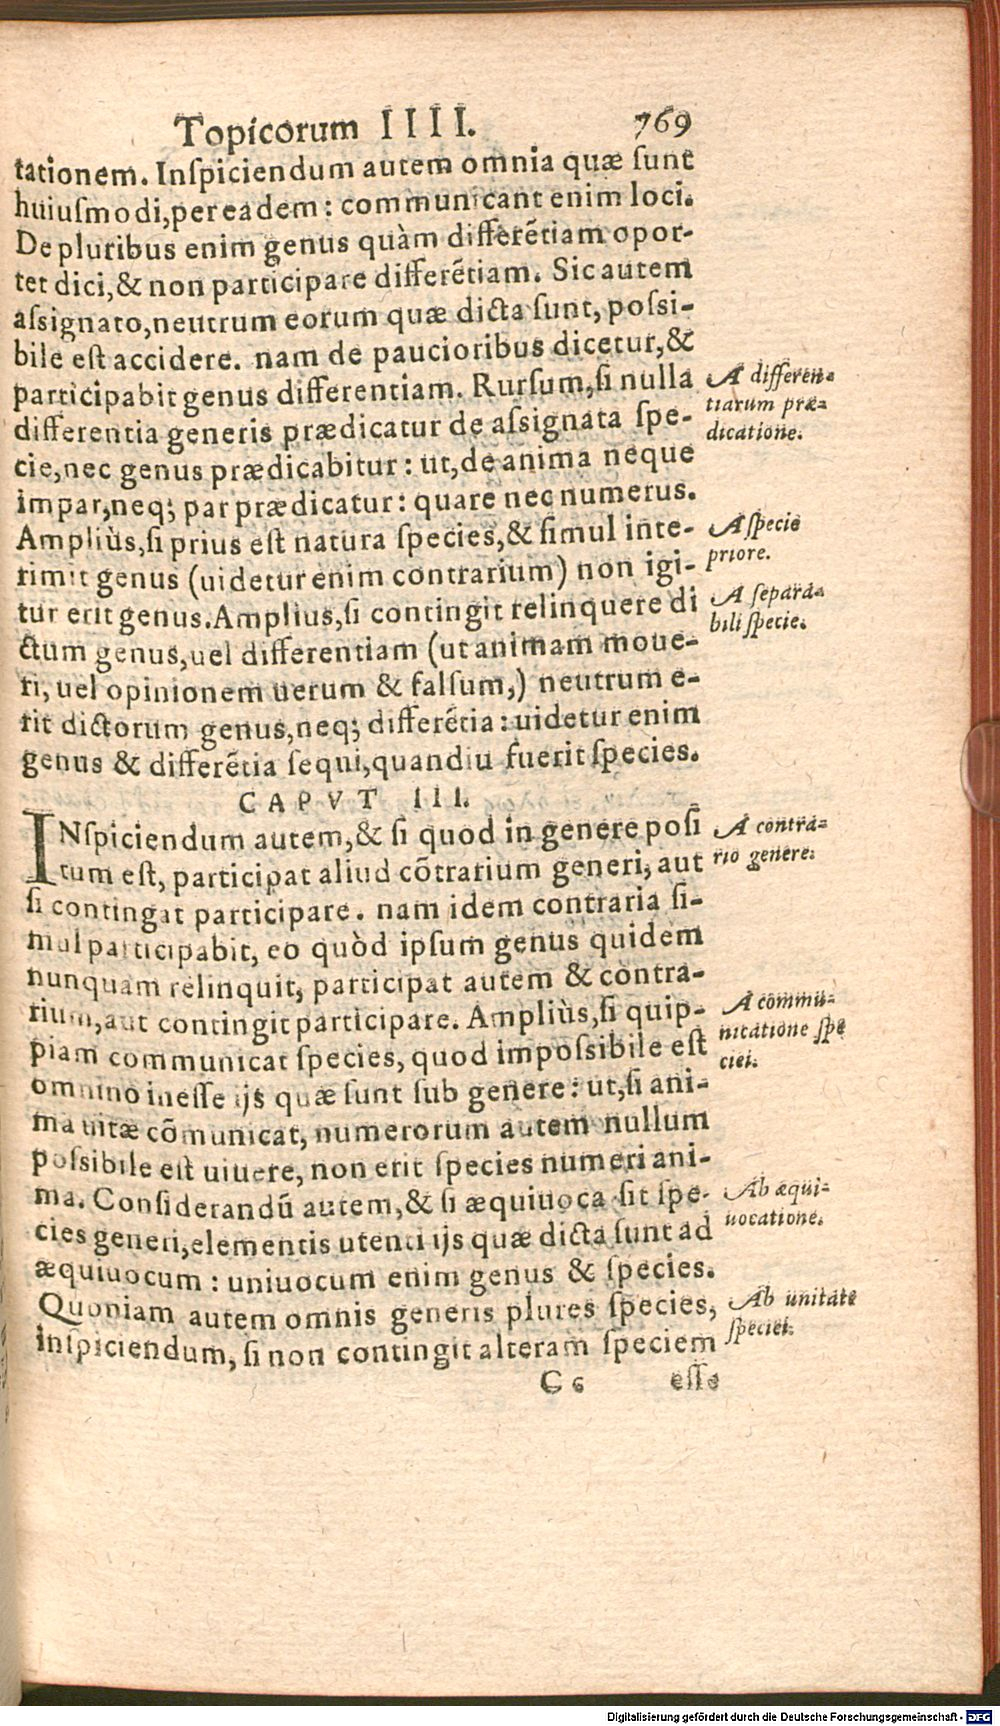 Topicorum IIII. 769
tationem. Inſpiciendum autem omnia quæ ſunt
huiuſmodi,per eadem: communicant enim loci.
De pluribus enim genus quàm differẽtiam opor-
tet dici,& non participare differẽtiam. Sic autem
aſsignato,neutrum eorum quæ dicta ſunt, poſsi-
bile eſt accidere. nam de paucioribus dicetur,&
participabit genus differentiam. Rurſum,ſi nulla
A differen-
tiarum præ-
dicatione.
differentia generis prædicatur de aſsignata ſpe-
cie,nec genus prædicabitur: ut,de anima neque
impar,neq; par prædicatur: quare nec numerus.
Ampliùs,ſi prius eſt natura ſpecies,& ſimul inte-
A ſpecie
priore.
rimit genus (uidetur enim contrarium) non igi-
tur erit genus.Amplius,ſi contingit relinquere di
A ſepara-
bili ſpecie.
ctum genus,uel differentiam (ut animam moue-
ri, uel opinionem uerum & falſum,) neutrum e-
rit dictorum genus,neq; differẽtia: uidetur enim
genus & differẽtia ſequi,quandiu fuerit ſpecies.
CAPVT III.
INſpiciendum autem,& ſi quod in genere poſi
A contra-
rio genere.
tum eſt, participat aliud cõtrarium generi, aut
ſi contingat participare. nam idem contraria ſi-
mul participabit, eo quòd ipſum genus quidem
nunquam relinquit, participat autem & contra-
rium,aut contingit participare. Ampliùs,ſi quip-
A commu-
nicatione ſpe
ciei.
piam communicat ſpecies, quod impoſsibile eſt
omnino ineſſe ijs quæ ſunt ſub genere: ut,ſi ani-
ma uitæ cõmunicat, numerorum autem nullum
poſsibile eſt uiuere, non erit ſpecies numeri ani-
ma. Conſiderandũ autem,& ſi æquiuoca ſit ſpe-
Ab æqui-
uocatione.
cies generi,elementis utenti ijs quæ dicta ſunt ad
æquiuocum: uniuocum enim genus & ſpecies.
Quoniam autem omnis generis plures ſpecies,
Ab unitate
ſpeciei.
inſpiciendum, ſi non contingit alteram ſpeciem
C c eſſe
Digitalisierung gefördert durch die Deutsche Forschungsgemeinschaft - DFG